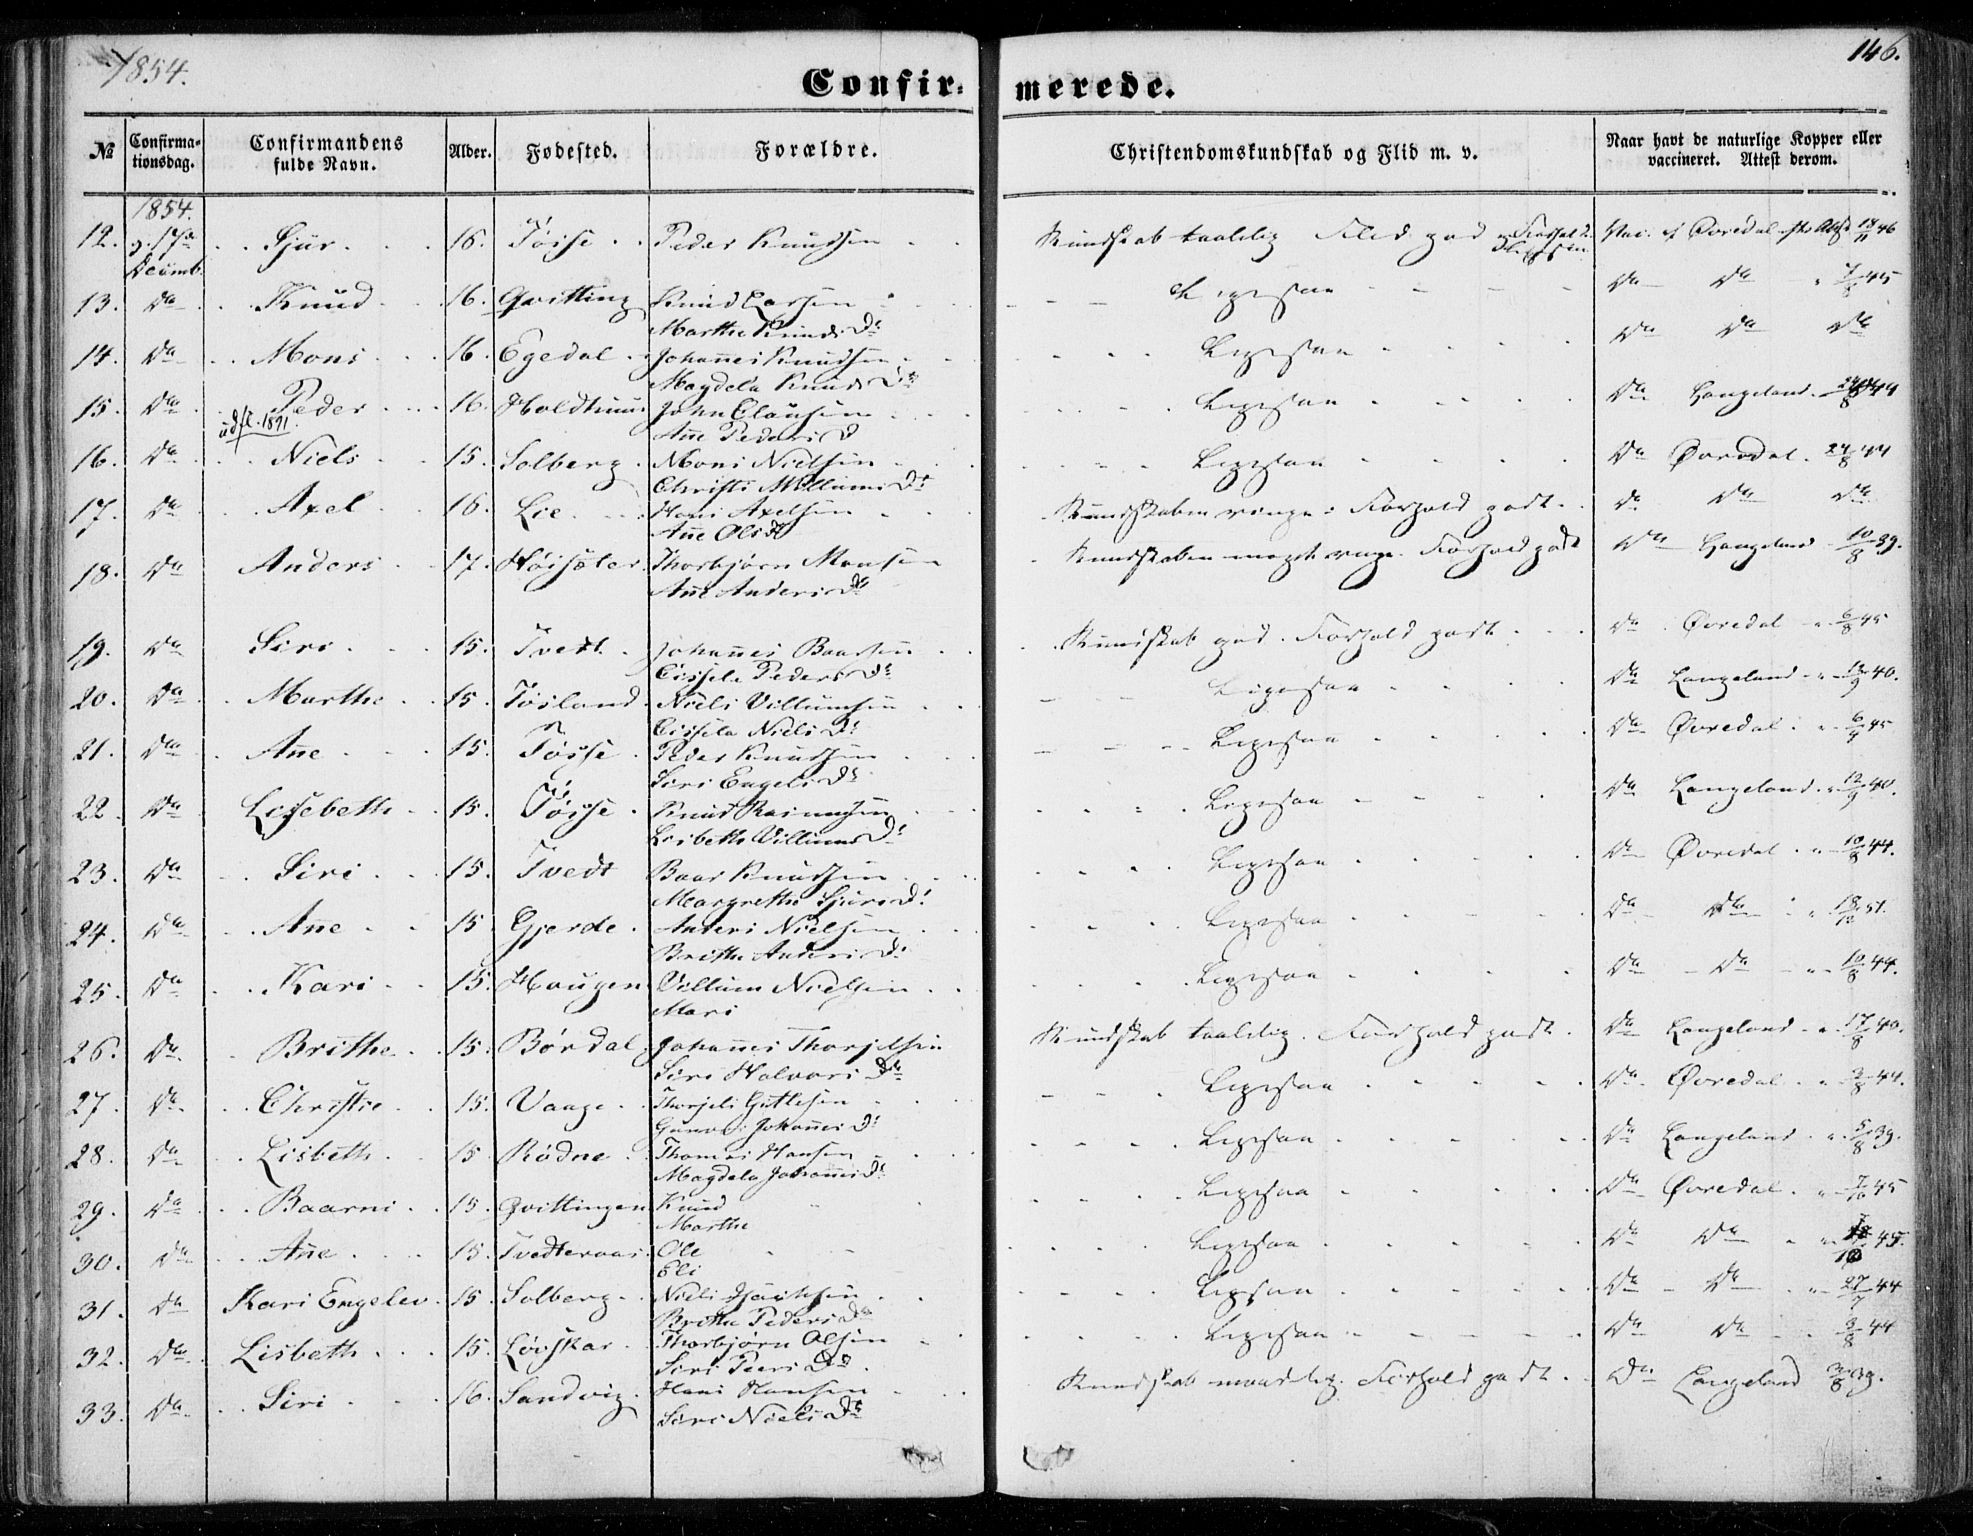 1854.
146.
Confir-
merede.
№
Confirma-
tionsdag.
Confirmandens
fulde Navn.
Alder.
Fødested.
Forældre.
Christendomskundskab og Flid m. v.
Naar havt de naturlige Kopper eller
vaccineret. Attest derom.
1854.
12. Sjur 16. Tøsse Peder Knudsen Kundskab taalelig Flid god Vac. af Øvredal 46
Decemb.
13. Do Knud 16. Qvitting Knud Larsen Ligesaa Do Do 7/8 45
Marthe Knuds Dr
14. Do Mons 16. Egedal Johannes Knudsen Ligesaa Do Do Do
Magdela Knuds Dr
15. Do Peder 16. Holdhuus John Clausen Ligesaa Do Langeland
udfl. 1891.
Ane Peders D
16. Do Niels 15. Solberg Mons Nielsen Ligesaa Do Øvredal 24/8 44
Christi Villums Dr
17. Do Axel 16. Lie Hans Axelsen Kundskaben ringe. Forhold godt. Do Do Do
Ane Ols Dr
18. Do Anders 17. Høisæter Thorbjørn Monsen Kundskaben meget ringe. Forhold godt Do Langeland 10/8 39.
Ane Anders Dr
19. Do Siri 15. Tvedt Johannes Baarsen Kundskab god. Forhold godt Do Øvredal 6/8 45
Cissele Peders Dr
20. Do Marthe 15. Tøsland Niels Villumsen Ligesaa Do Langeland 12/9 40.
Cissela Niels Dr
21. Do Ane 15. Tøsse Peder Knudsen Ligesaa Do Øvredal 6/9 45
Siri Engels Dr
22. Do Lisebeth 15. Tøsse Knud Rasmussen Ligesaa Do Langeland 12/9 40.
Lisbeth Villums Dr
23. Do Siri 15. Tvedt Baar Knudsen Ligesaa Do Øvredal 10/8 44.
Margrethe Sjurs Dr
24. Do Ane 15 Gjerde Anders Nielsen Ligesaa Do Do 51.
Brithe Anders Dr
25. Do Kari 15. Haugen Villum Nielsen Ligesaa Do Do 10/8 44.
Mari
26. Do Brithe 15. Børdal Johannes Thorjelsen Kundskab taalelig. Forhold godt Do Langeland 17/8 40.
Siri Halvors Dr
27. Do Christie 15. Vaage Thorjels Guttesen Ligesaa Do Øvredal 3/8 44.
Johannes Dr
28. Do Lisbeth 15 Rødne Thomas Hansen Ligesaa Do Langeland 5/8 39.
Magdela Johannes Dr
29. Do Baarni 15. Qvittingen Knud Ligesaa Do Øvredal 7/10 45
Marthe
30. Do Ane 15. Tvedteraas Ole Ligesaa Do Do 45.
Eli
31. Do Kari Engelev 15 Solberg Niels Ligesaa Do Do 27/7 44
Brithe Peders Dr
32. Do Lisbeth 15. Løvskar Thorbjørn Olsen Ligesaa Do Do 3/8 44
Siri Peers Dr
33. Do Siri 16. Sandvig Hans Hansen Kundskab maadelig. Forhold godt. Do Langeland 3/8 39.
Siri Niels Dr